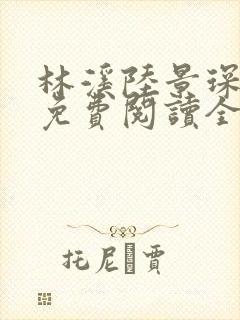 林溪陸景琛
免費閱讀全
托尼·賈